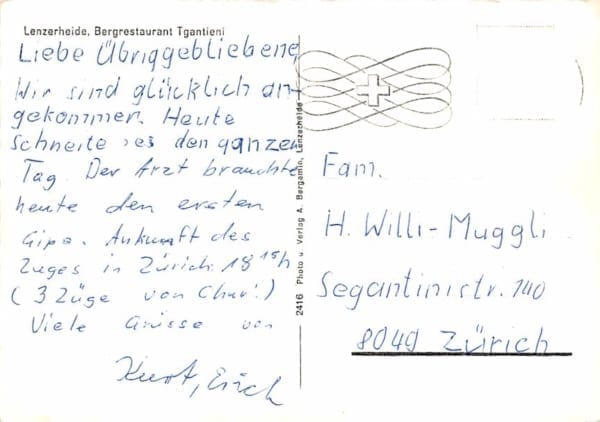 Lenzerheide, Bergrestaurant Tgantieni
Liebe Übriggebliebene,
Wir sind glücklich an-
gekommen. Heute
schneite es den ganzen
Tag. Der Arzt brauchte
heute den ersten
Gips. Ankunft des
Zuges in Zürich 18 15h
(3 Züge von Chur!)
Viele Grüsse von
Kurt, Erich
2416 Photo u. Verlag A. Bergamin, Lenzerheide
Fam.
H. Willi-Muggli
Segantinistr. 140
8049 Zürich